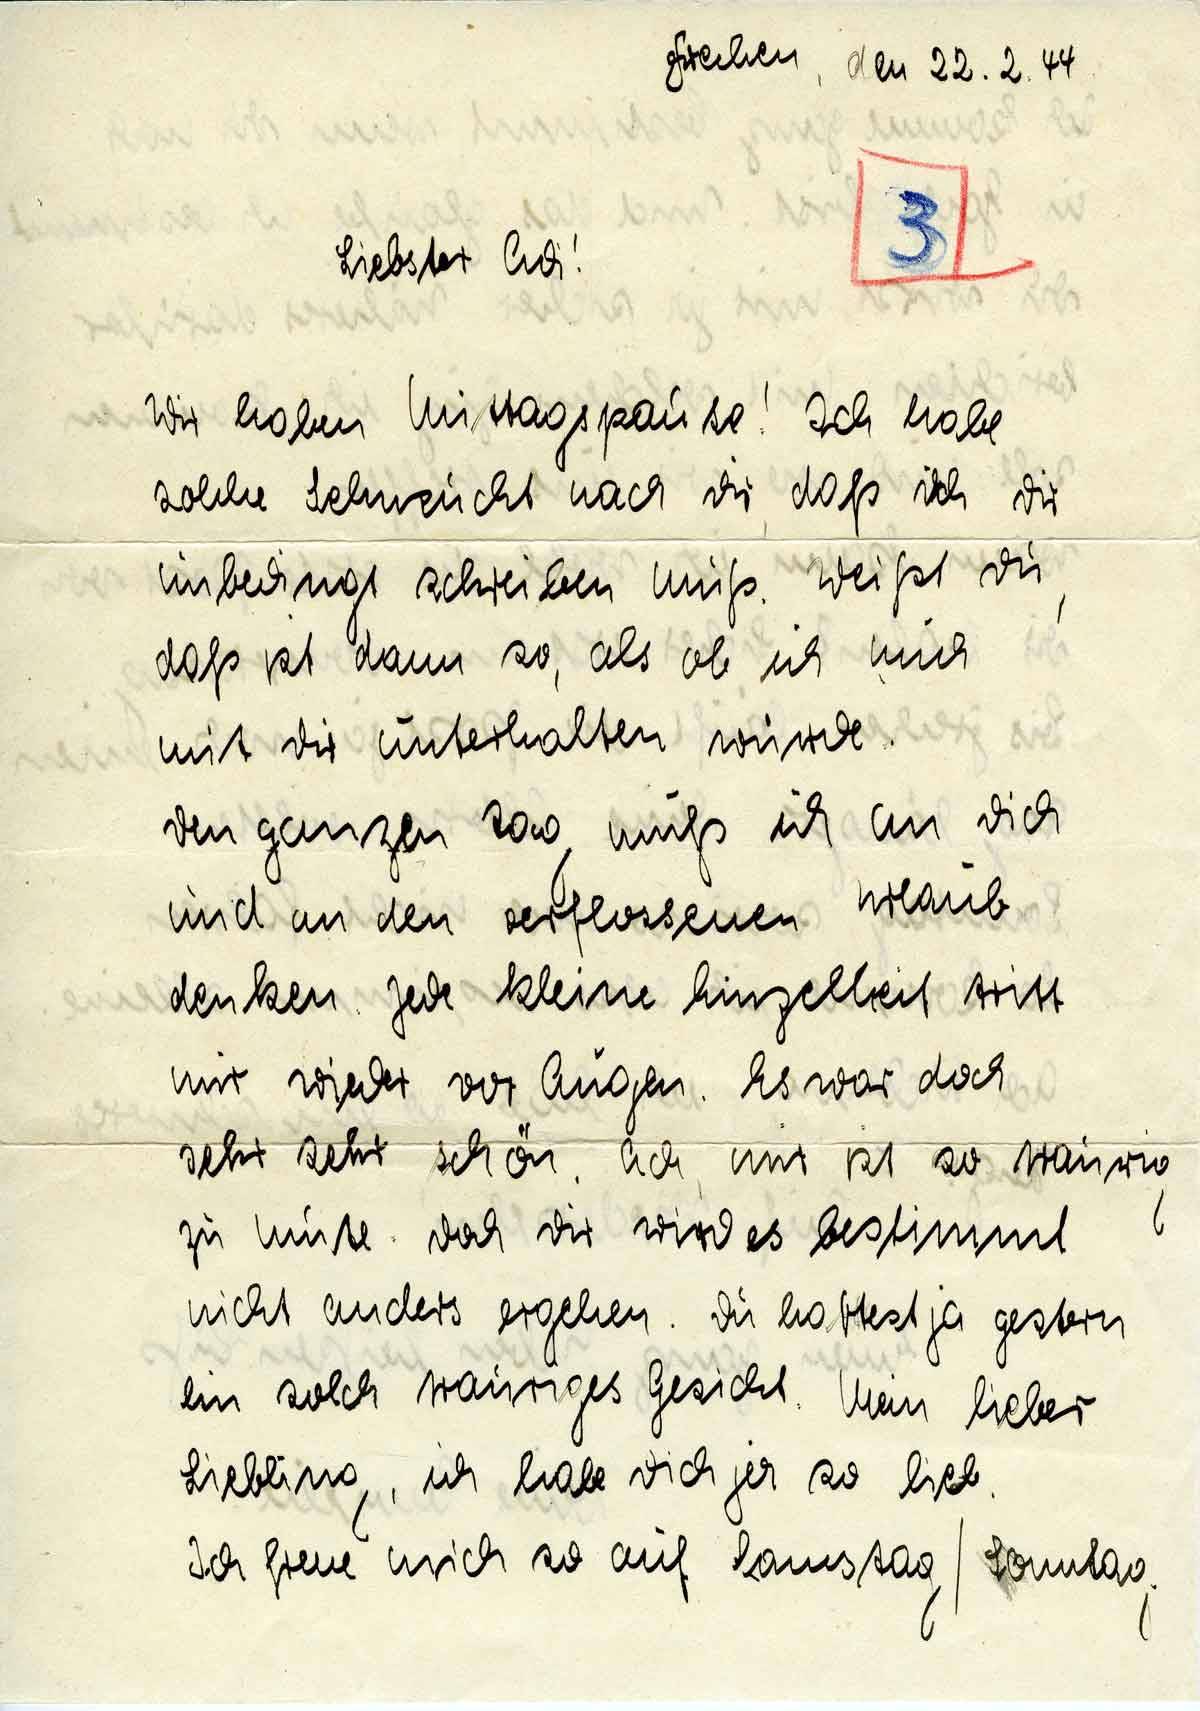 Frechen, den 22.2.44
3
Liebster Adi!
Wir haben Mittagspause! Ich habe
solche Sehnsucht nach dir, daß ich dir
unbedingt schreiben muß. Weißt du,
daß ist dann so, als ob ich mich
mit dir unterhalten würde.
Den ganzen Tag muß ich an dich
und an den verflossenen Urlaub
denken. Jede kleine Einzelheit tritt
mir wieder vor Augen. Es war doch
sehr sehr schön. Ach, mir ist so traurig
zu Mute. Doch dir wird es bestimmt
nicht anders ergehen. Du hattest ja gestern
ein solch trauriges Gesicht. Mein lieber
Liebling, ich habe dich ja so lieb.
Ich freue mich so auf Samstag/Sonntag.